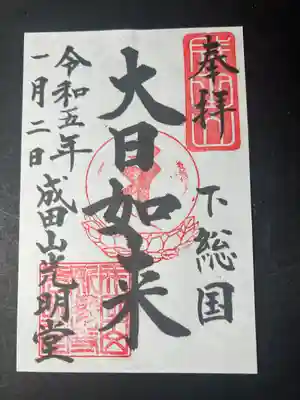 奉拝
下総国
大日如来
令和五年
一月二日
成田山光明堂